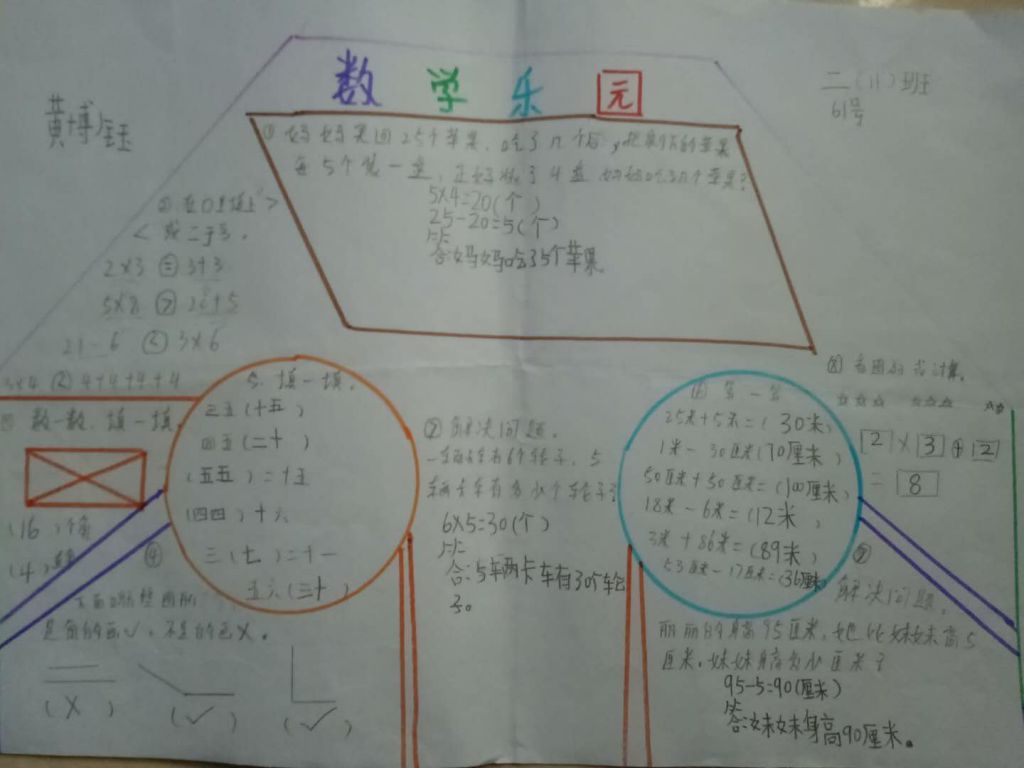 数学乐园
黄博钰
二(11)班
61号
①妈妈买回25个苹果,吃了几个后,把剩下的苹果
每5个装一盘,正好装了4盘,妈妈吃了几个苹果?
5×4=20(个)
25-20=5(个)
答:妈妈吃了5个苹果
②在○里填上>
<或二于号。
2×3 = 3+3
5×8 > 2+5
21-6 < 3×6
3×4 < 4+4+4+4
数一数,填一填。
(16)个角
(4)
④
是角的画√,不是的画×。
(×)
(√)
(√)
填一填。
三五(十五)
四五(二十)
(五五)=十五
(四四)十六
三(七)=十一
五六(三十)
⑦解决问题。
一辆卡车有6个轮子,5
辆卡车有多少个轮子?
6×5=30(个)
答:5车两卡车有30个轮
子。
算一算
25米+5米=(30米)
1米-30厘米(70厘米)
50厘米+50厘米=(100厘米)
18米-6米=(12米)
3米+86米=(89米)
53厘米-17厘米=(36厘米)
⑧看图列式计算。
☆☆☆ ☆☆☆ ☆☆
2×3+2
=8
⑨
解决问题,
丽丽的身高95厘米,她比妹妹高5
厘米,妹妹身高多少厘米?
95-5=90(厘米)
答:妹妹身高90厘米。